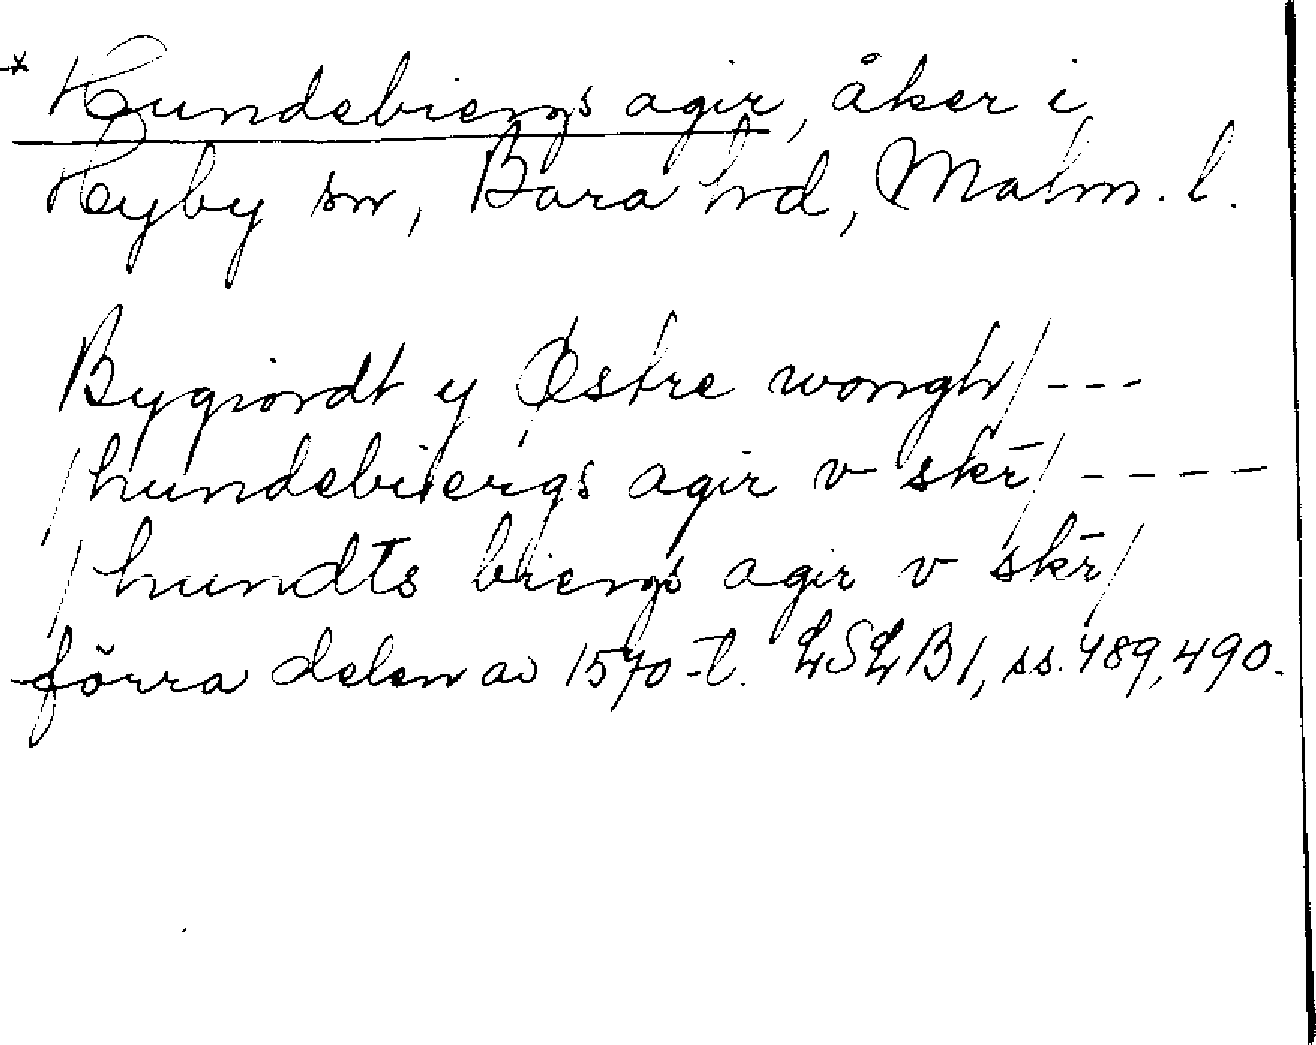 * Hundebiergs agir, åker i
Hyby sn, Bara hd, Malm. l.
Bygiordt y Østre wongh/ ---
/hundebiergs agir v skr̄/ ----
/hundts biergs agir v skr̄/
förra delen av 1570-t. LSLB1, ss. 489, 490.